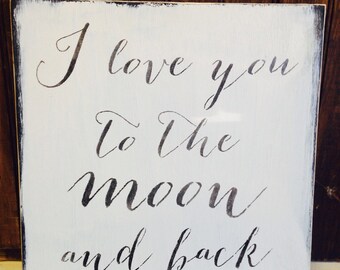 I love you
to the
moon
and back